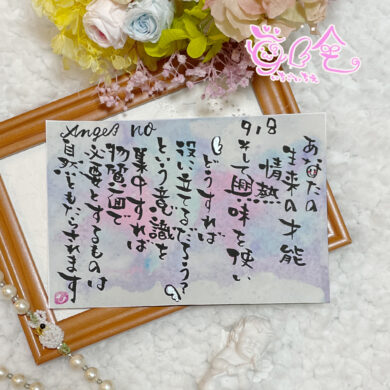 Angel no
918
あなたの
生来の才能
情熱
そして興味を使い
どうすれば
役に立てるだろう?
という意識を
集中すれば
物質面で
必要とするものは
自然ともたらされます